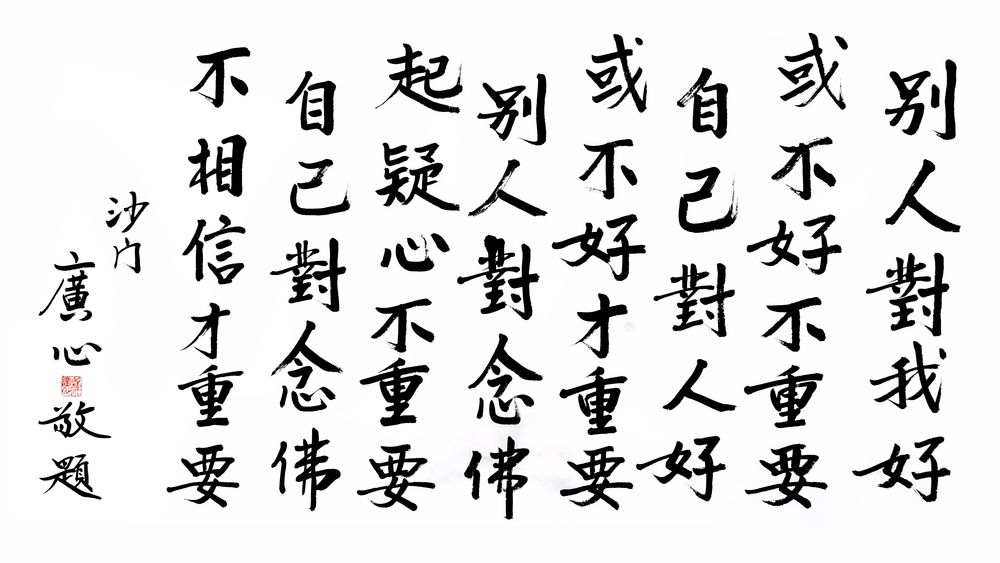 别人對我好
或不好不重要
自己對人好
或不好才重要
别人對念佛
起疑心不重要
自己對念佛
不相信才重要
沙门
廣心敬題